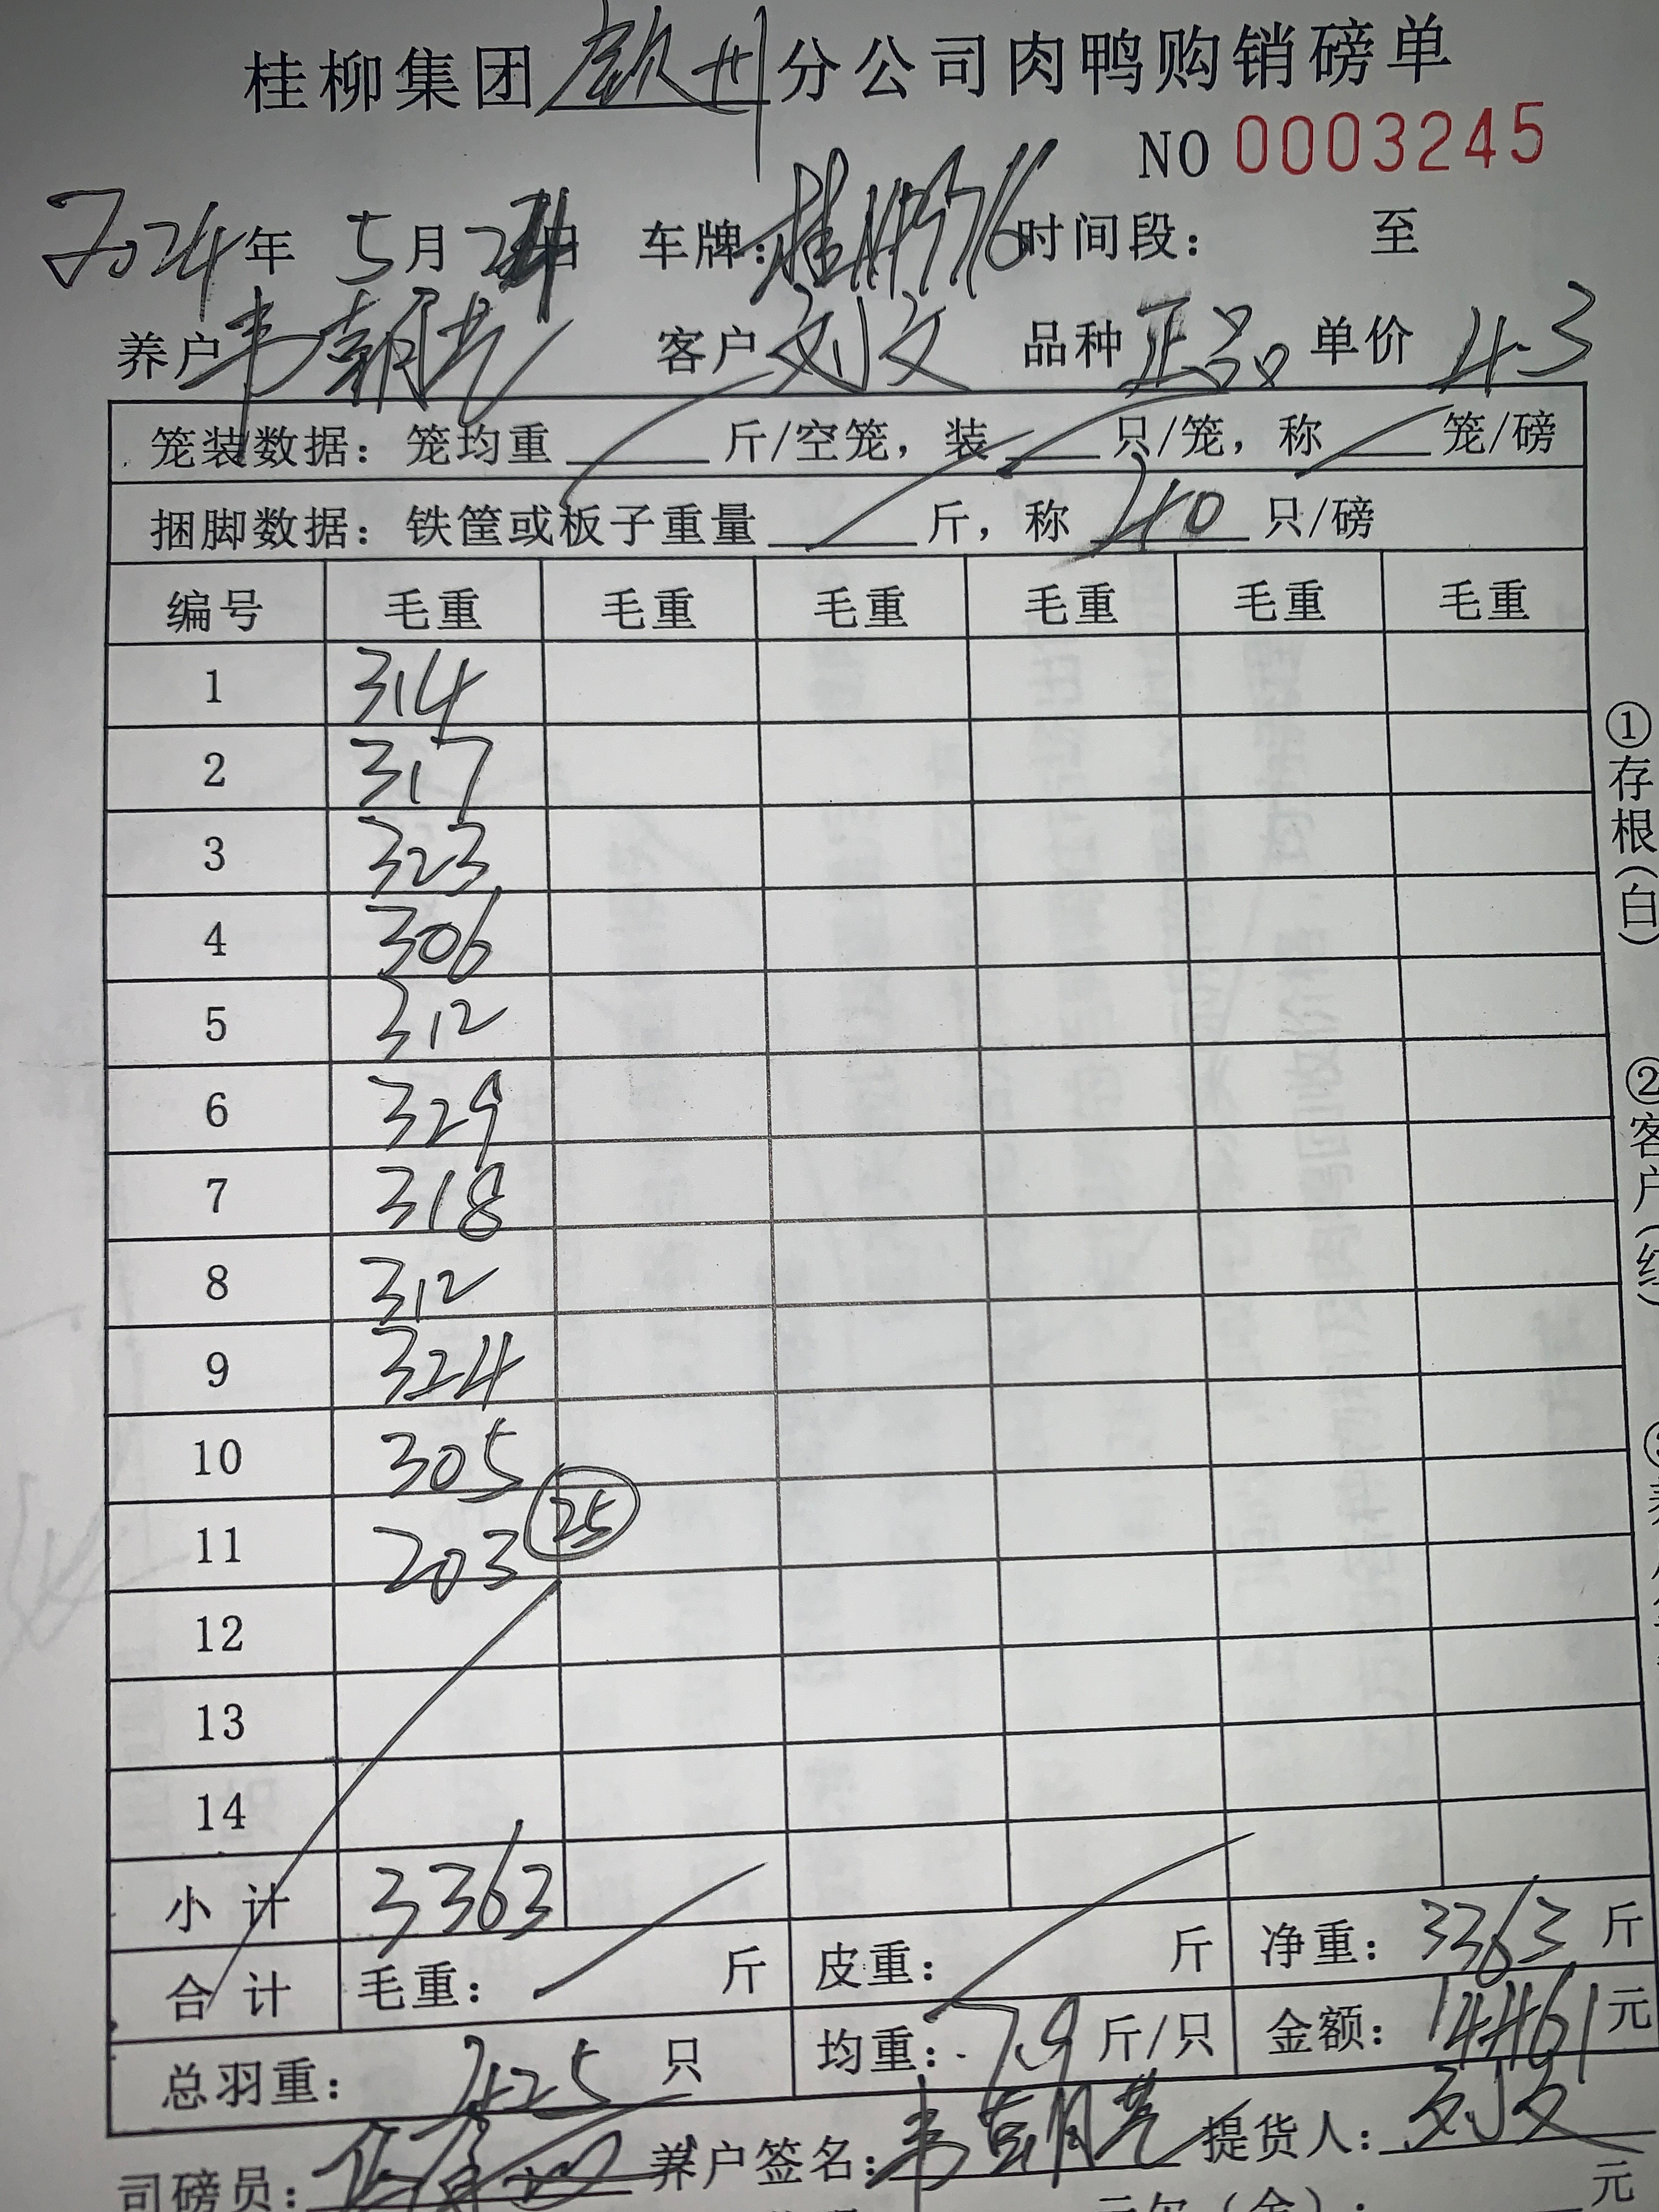 桂柳集团钦州分公司肉鸭购销磅单
NO 0003245
2024年 5月24日 车牌: 时间段: 至
养户 韦朝 客户 刘文 品种 正品 单价 4.3
笼装数据: 笼均重 斤/空笼, 装 只/笼, 称 笼/磅
捆脚数据: 铁筐或板子重量 斤, 称 40 只/磅
编号 毛重 毛重 毛重 毛重 毛重 毛重
1 314
2 317
3 323
4 306
5 312
6 329
7 318
8 312
9 324
10 305
11 203 25
12
13
14
小计 3363
合计 毛重: 斤 皮重: 斤 净重: 3363 斤
总羽重: 425 只 均重: 7.9 斤/只 金额: 14461 元
司磅员: 养户签名: 韦朝 提货人: 刘文
元
①存根(白)
②客户(红)